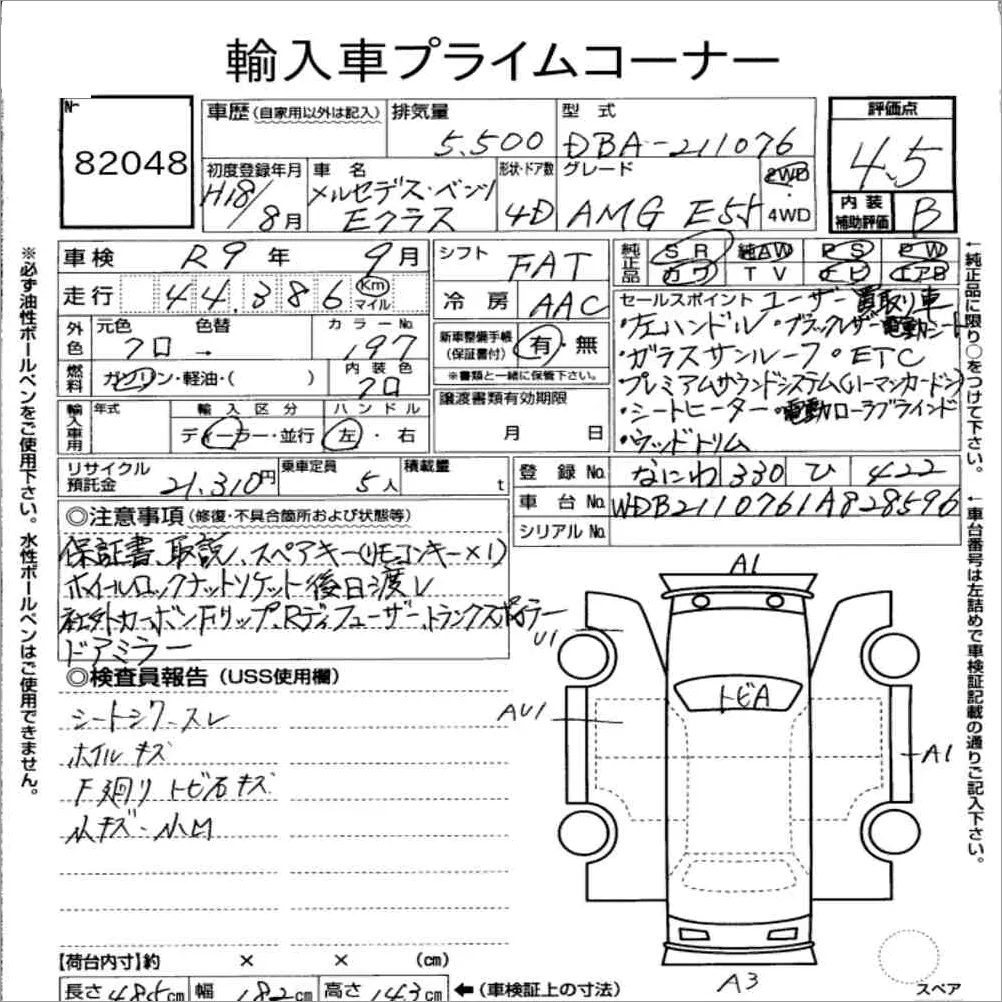 輸入車プライムコーナー
No.
82048
車歴(自家用以外は記入) 排気量 5,500 型式 DBA-211076
評価点 4.5
初度登録年月 H18/8月 車名 メルセデス・ベンツ Eクラス 形状・ドア数 4D グレード AMG E55 2WD・4WD
内装補助評価 B
車検 R9年 9月
シフト FAT
純正品 SR 純AW PS PW
カワ TV ナビ エアB
走行 44,386 Km マイル
冷房 AAC
外色 元色 クロ → 色替 カラーNo. 197
燃料 ガソリン・軽油・( ) 内装色 クロ
新車整備手帳(保証書付) 有・無
※書類と一緒に保管下さい。
譲渡書類有効期限
月 日
輸入車用 年式 輸入区分 ディーラー・並行 ハンドル 左・右
セールスポイント ユーザー買取り車
・左ハンドル・ブラックレザー電動シート
・ガラスサンルーフ・ETC
・プレミアムサウンドシステム(ハーマンカードン)
・シートヒーター・電動ローラブラインド
・ウッドトリム
リサイクル預託金 21,310円 乗車定員 5人 積載量 t
登録No. なにわ 330 ひ 422
車台No. WDB2110761A828596
シリアルNo.
◎注意事項(修復・不具合箇所および状態等)
保証書、取説、スペアキー(リモコンキー×1)
ホイールロックナットソケット後日渡し
社外カーボンFリップ、Rディフューザー、トランクスポイラー
ドアミラー
◎検査員報告(USS使用欄)
シートシワ・スレ
ホイルキズ
F廻りトビ石キズ
小キズ・小凹
A1
U1
トビA
AU1
A1
A3
スペア
【荷台内寸】約 × × (cm)
長さ 485cm 幅 182cm 高さ 143cm ←(車検証上の寸法)
※必ず油性ボールペンをご使用下さい。水性ボールペンはご使用できません。
←純正品に限り○をつけて下さい。
←車台番号は左詰めで車検証記載の通りご記入下さい。